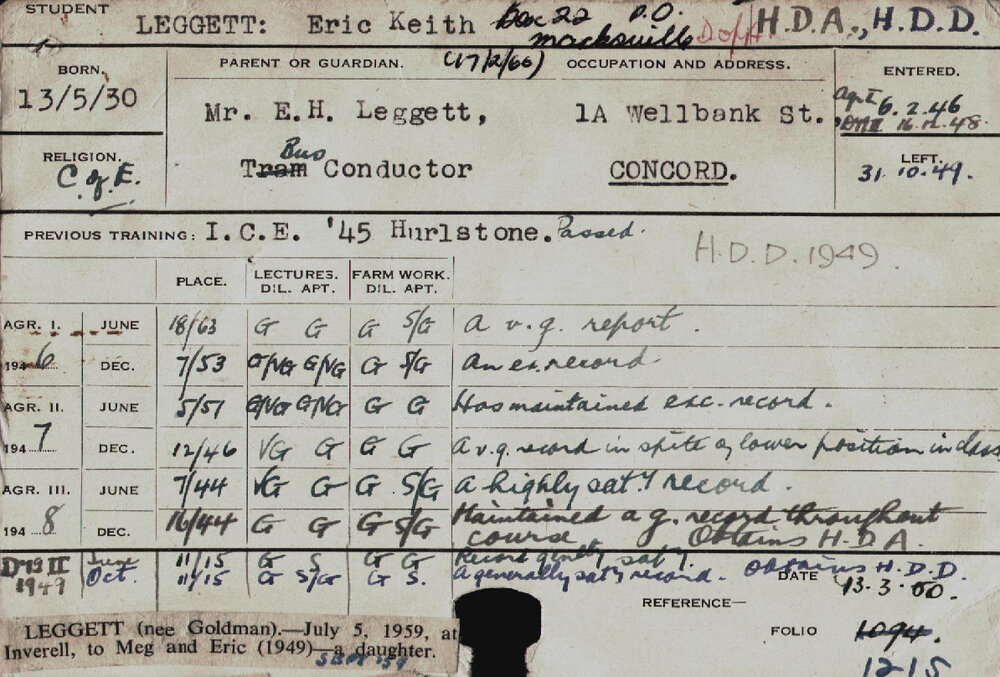 STUDENT
LEGGETT: Eric Keith Box 22 P.O. H.D.A., H.D.D.
macksville
PARENT OR GUARDIAN. (17/2/66) OCCUPATION AND ADDRESS.
BORN. ENTERED.
13/5/30
Mr. E.H. Leggett, 1A Wellbank St. Agr I 6.2.46
16.12.48.
RELIGION. LEFT.
Bus
C of E. Tram Conductor CONCORD. 31.10.49.
PREVIOUS TRAINING: I.C.E. '45 Hurlstone. Passed.
H.D.D. 1949.
PLACE. LECTURES. FARM WORK.
DIL. APT. DIL. APT.
AGR. I. JUNE 18/63 G G G S/G A v.g. report.
1946 DEC. 7/53 G/NG G/NG G S/G An ex. record
AGR. II. JUNE 5/51 G/NG G/NG G G Has maintained exc. record.
1947 DEC. 12/46 VG G G G A v.g. record in spite of lower position in class
AGR. III. JUNE 7/44 VG G G S/G A highly sat.y record.
1948 DEC. 16/44 G G G S/G Maintained a g. record throughout
course Obtains H.D.A.
II June 11/15 G S G G Record sat.y.
1949 Oct. 11/15 G S/G G S. A generally sat.y record. Obtains H.D.D.
DATE 13.3.50.
REFERENCE—
LEGGETT (nee Goldman).—July 5, 1959, at
Inverell, to Meg and Eric (1949)—a daughter.
SEPT '59
FOLIO 1094.
1215